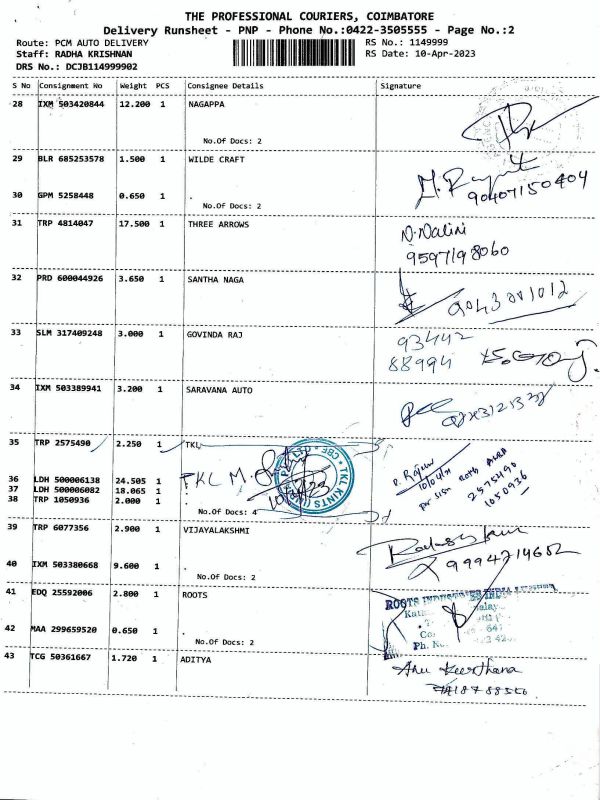 THE PROFESSIONAL COURIERS, COIMBATORE
Delivery Runsheet - PNP - Phone No.:0422-3505555 - Page No.:2
Route: PCM AUTO DELIVERY RS No.: 1149999
Staff: RADHA KRISHNAN RS Date: 10-Apr-2023
DRS No.: DCJB114999902
S No Consignment No Weight PCS Consignee Details Signature
28 IXM 503420844 12.200 1 NAGAPPA
No.Of Docs: 2
29 BLR 685253578 1.500 1 WILDE CRAFT
30 GPM 5258448 0.650 1 .
No.Of Docs: 2
31 TRP 4814047 17.500 1 THREE ARROWS
N. Nalini
9597198060
32 PRD 600044926 3.650 1 SANTHA NAGA
9043001012
33 SLM 317409248 3.000 1 GOVINDA RAJ
93442
88994
34 IXM 503389941 3.200 1 SARAVANA AUTO
35 TRP 2575490 2.250 1 TKL
36 LDH 500006138 24.505 1
TKL M.
37 LDH 500006082 18.065 1
38 TRP 1050936 2.000 1
No.Of Docs: 4
TKL KNITS
CBE
2575490
1050936
39 TRP 6077356 2.900 1 VIJAYALAKSHMI
9994714652
40 IXM 503380668 9.600 1 .
No.Of Docs: 2
41 EDQ 25592006 2.800 1 ROOTS
ROOTS INDUSTRIES INDIA
42 MAA 299659520 0.650 1 .
No.Of Docs: 2
43 TCG 50361667 1.720 1 ADITYA
Anu Keerthana